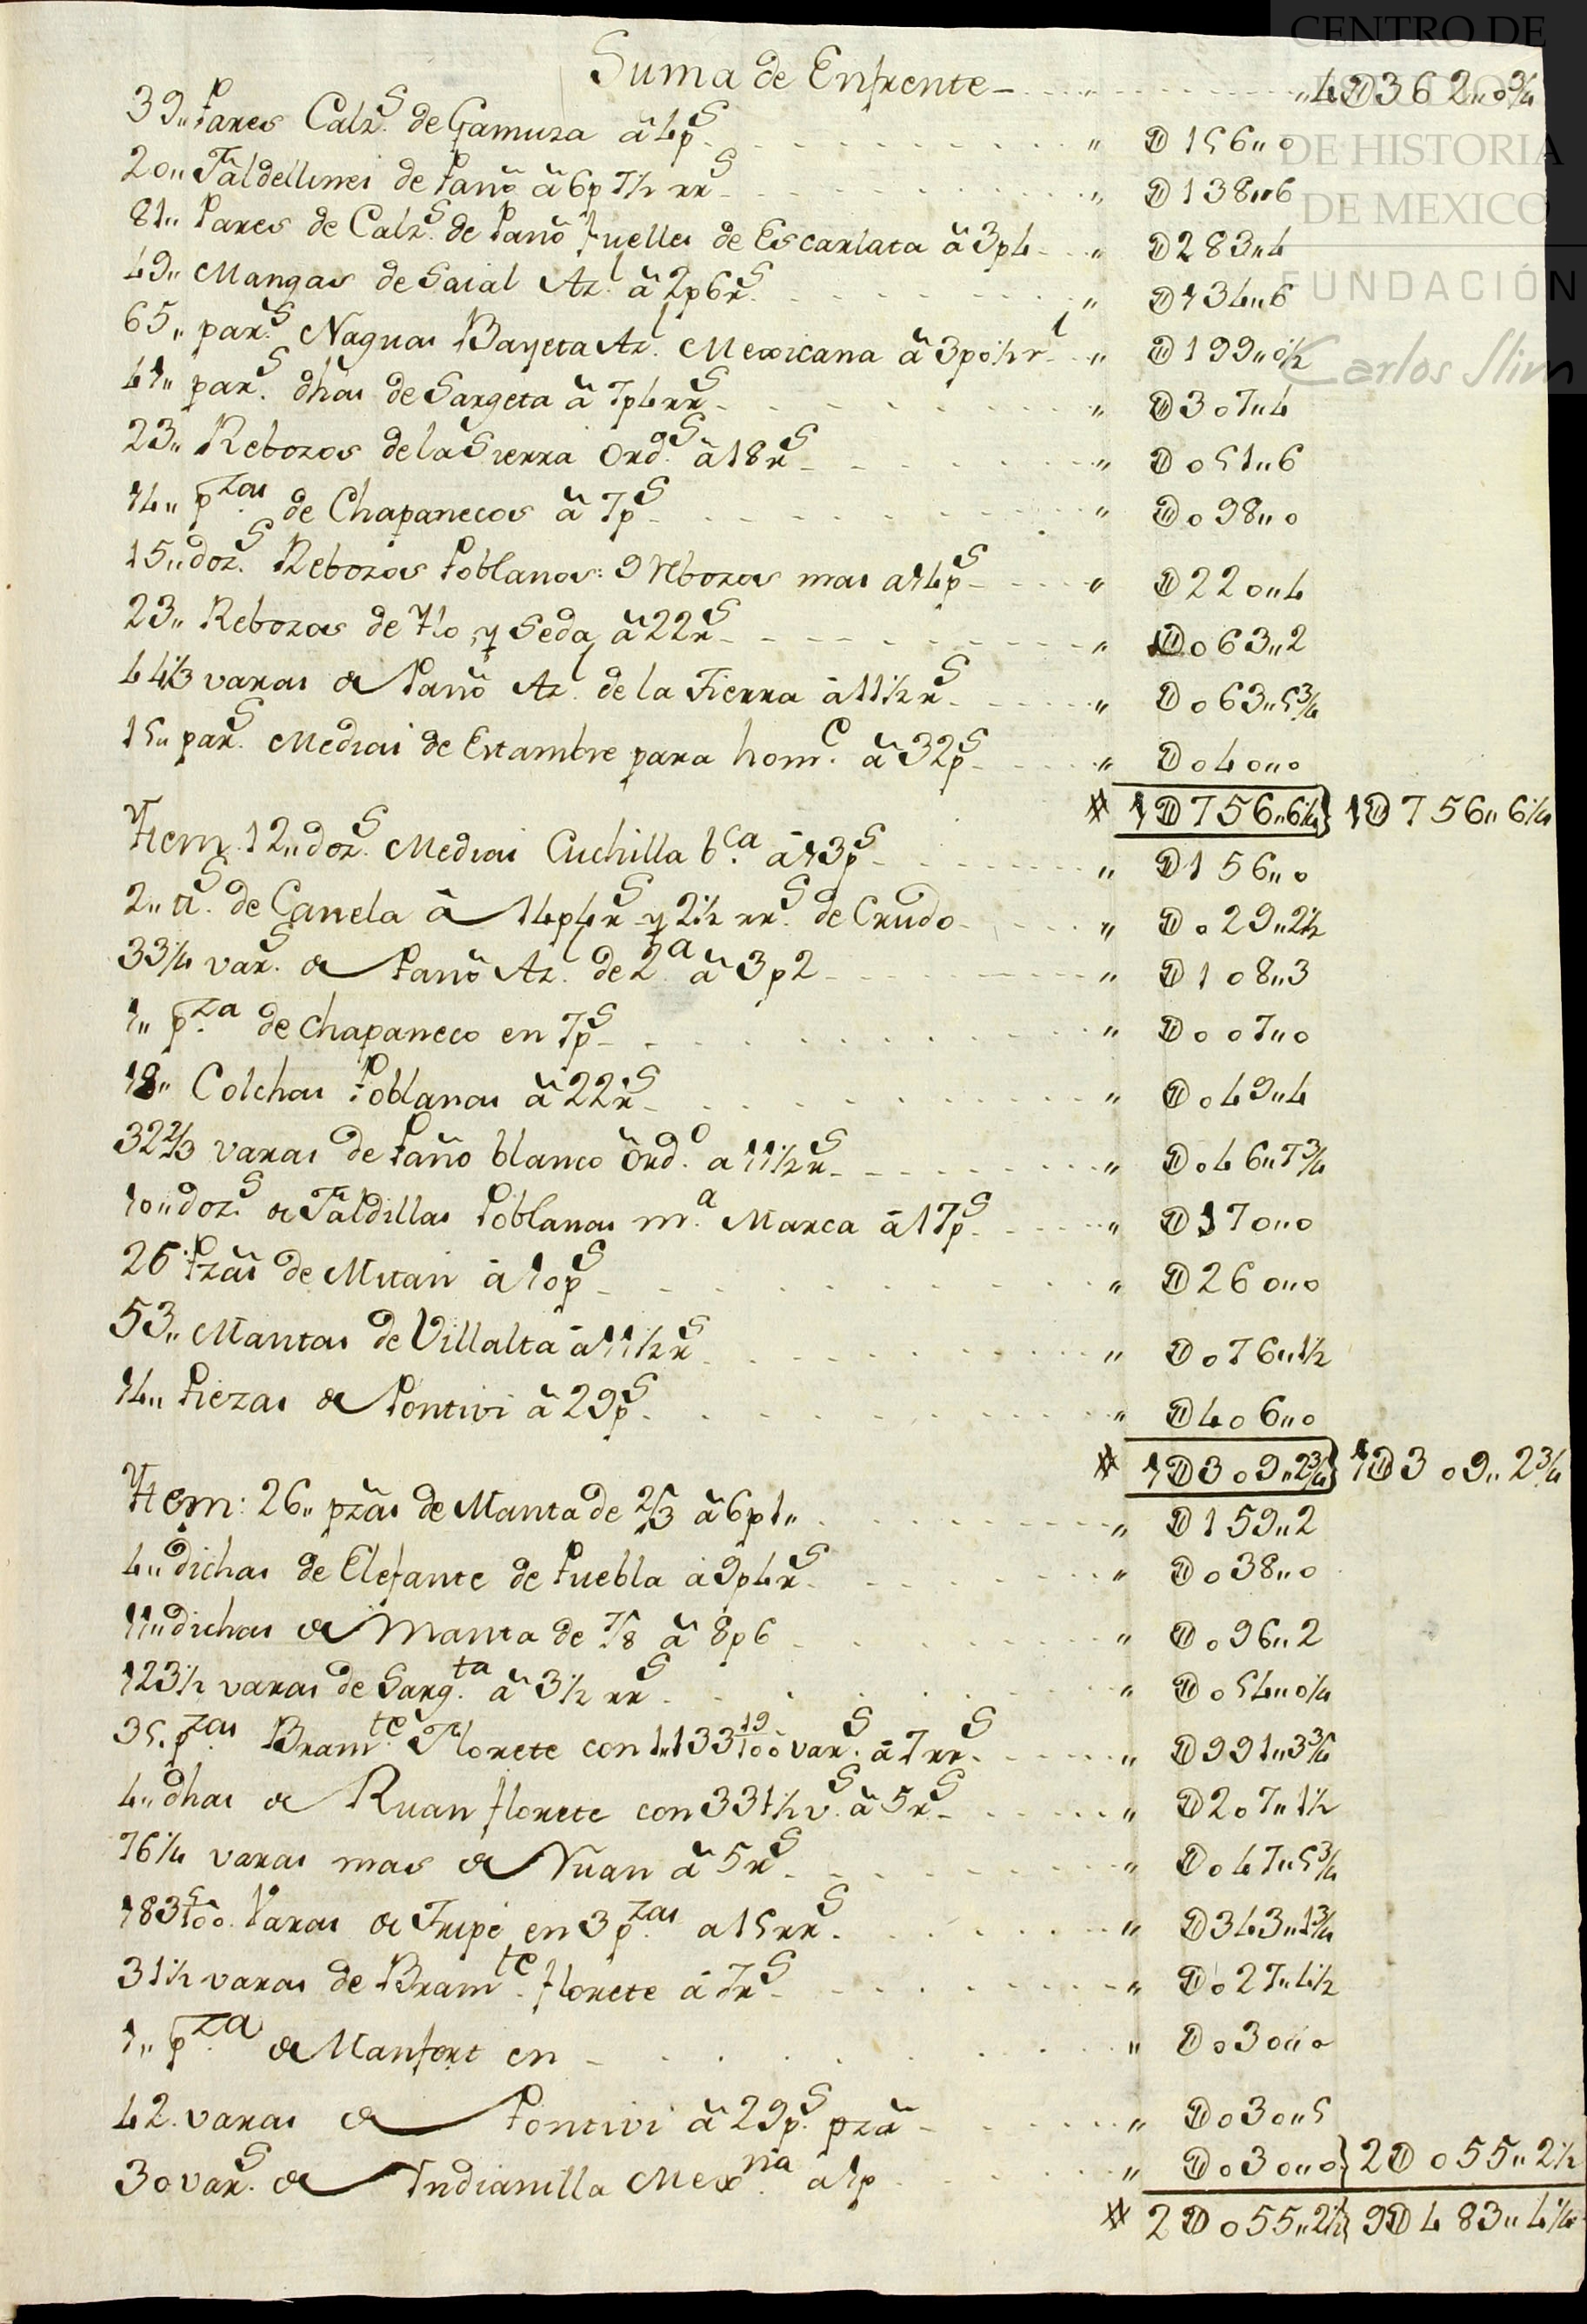 CENTRO DE
Suma de Enfrente - „ 4D362„0¾
39„ Pares Calz.s de Gamuza â 4p.s „ D156„0
DE HISTORIA
20„ Faldellines de Paño â 6p 7½ rr.s „ D138„6
DE MEXICO
81„ Pares de Calz.s de Paño fuelles de Escarlata â 3p4 „ D283„4
49„ Mangas de Saial Az.l â 2p6r.s „ D134„6
FUNDACIÓN
65„ par.s Naguas Bayeta Az.l Mexicana â 3p0½r.l „ D199„0½
Carlos Slim
41„ par.s dhas de Sargeta â 7p4rr.s „ D307„4
23„ Rebozos de la Sierra Ord.s â 18r.s „ D051„6
14„ p.zas de Chapanecos â 7p.s „ D098„0
15„ doz.s Rebozos Poblanos: 9 Rbozos mas a 14p.s „ D220„4
23„ Rebozos de Ylo y Seda â 22r.s „ D063„2
44⅓ varas de Paño Az.l de la Tierra â 11½r.s „ D063„5¾
15„ par.s Medias de Estambre para hom.e â 32p.s „ D040„0
# 1D756„6¼} 1D756„6¼
Ytem. 12„ doz.s Medias Cuchilla b.ca â 13p.s „ D156„0
2„ tt.s de Canela â 14p4r.s y 2½ rr.s de Crudo „ D029„2½
33¼ var.s de Paño Az.l de 2.a â 3p2 „ D108„3
1„ p.za de Chapaneco en 7p.s „ D007„0
18„ Colchas Poblanas â 22r.s „ D049„4
32⅔ varas de Paño blanco Ord.o a 11½r.s „ D046„7¾
10„ doz.s de Faldillas Poblanas m.a Marca â 17p.s „ D170„0
26 Pzãs de Mitan â 10p.s „ D260„0
53„ Mantas de Villalta â 11½r.s „ D076„1½
14„ Piezas de Pontivi â 29p.s „ D406„0
# 1D309„2¾} 1D309„2¾
Ytem: 26„ pzãs de Manta de ⅔ â 6p1„ „ D159„2
4„ dichas de Elefante de Puebla â 9p4r.s „ D038„0
11„ dichas de Manta de ⅞ â 8p6 „ D096„2
123½ varas de Sarg.ta â 3½ rr.s „ D054„0¼
35„ p.zas Bram.te Florete con 1„133 19/100 var.s â 7rr.s „ D991„3¾
4„ dhas de Ruan florete con 331½ v.s â 5r.s „ D207„1½
76¼ varas mas de Ruan â 5r.s „ D047„5¾
183 5/100. Varas de Tripe en 3 p.zas a 15rr.s „ D343„1¾
31½ varas de Bram.te florete â 7r.s „ D027„4½
1„ p.za de Manfort en „ D030„0
42. varas de Pontivi â 29p.s pzã „ D030„5
30 var.s de Indianilla Mex.na â 1p „ D030„0} 2D055„2½
# 2D055„2½} 9D483„4¼